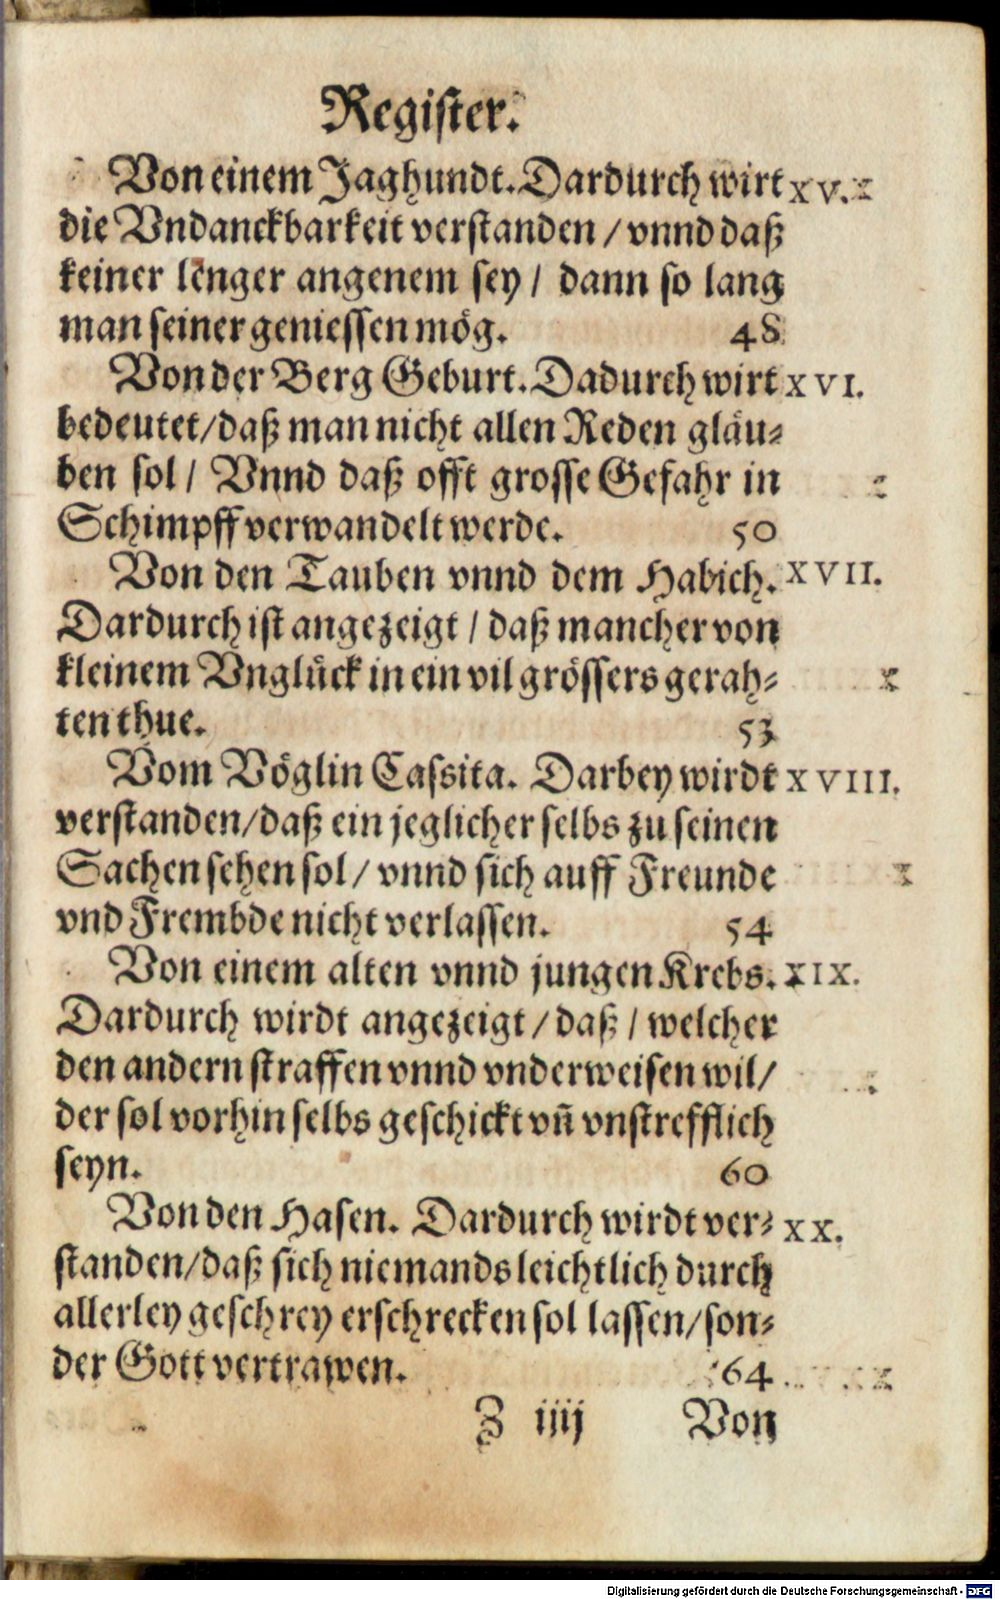 Register.
Von einem Jaghundt. Dardurch wirt XV.
die Vndanckbarkeit verstanden / vnnd daß
keiner lenger angenem sey / dann so lang
man seiner geniessen mög. 48
Von der Berg Geburt. Dadurch wirt XVI.
bedeutet/daß man nicht allen Reden gläu⸗
ben sol / Vnnd daß offt grosse Gefahr in
Schimpff verwandelt werde. 50
Von den Tauben vnnd dem Habich. XVII.
Dardurch ist angezeigt / daß mancher von
kleinem Vnglück in ein vil grössers gerah⸗
ten thue. 53
Vom Vöglin Cassita. Darbey wirdt XVIII.
verstanden/daß ein jeglicher selbs zu seinen
Sachen sehen sol / vnnd sich auff Freunde
vnd Frembde nicht verlassen. 54
Von einem alten vnnd jungen Krebs. XIX.
Dardurch wirdt angezeigt / daß / welcher
den andern straffen vnnd vnderweisen wil/
der sol vorhin selbs geschickt vñ vnstrefflich
seyn. 60
Von den Hasen. Dardurch wirdt ver⸗ XX.
standen/daß sich niemands leichtlich durch
allerley geschrey erschrecken sol lassen/son⸗
der Gott vertrawen. 64
Z iiij Von
Digitalisierung gefördert durch die Deutsche Forschungsgemeinschaft - DFG